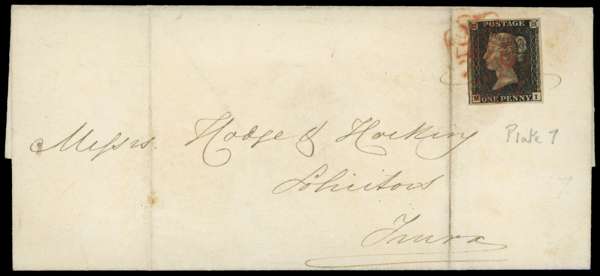 POSTAGE
ONE PENNY
Messrs Hodge & Hocking
Solicitors
Truro
Plate 7